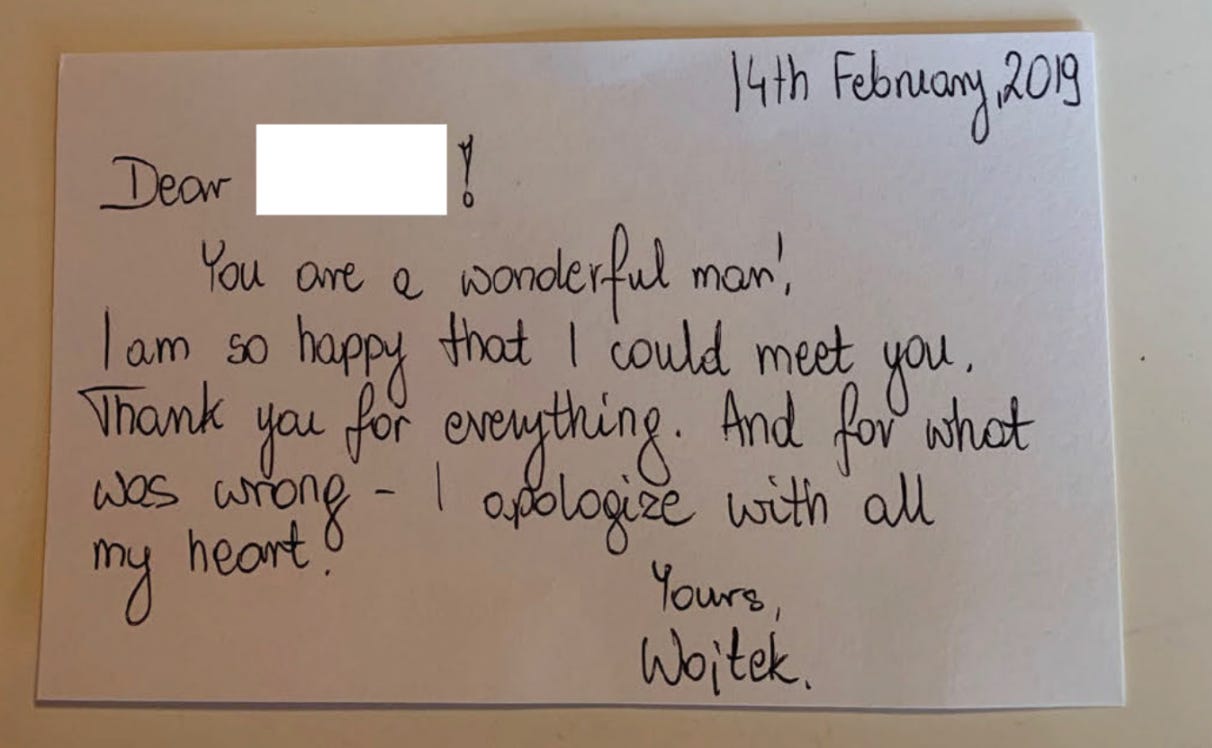 14th February, 2019
Dear !
You are a wonderful man!
I am so happy that I could meet you.
Thank you for everything. And for what
was wrong - I apologize with all
my heart.
Yours,
Wojtek.